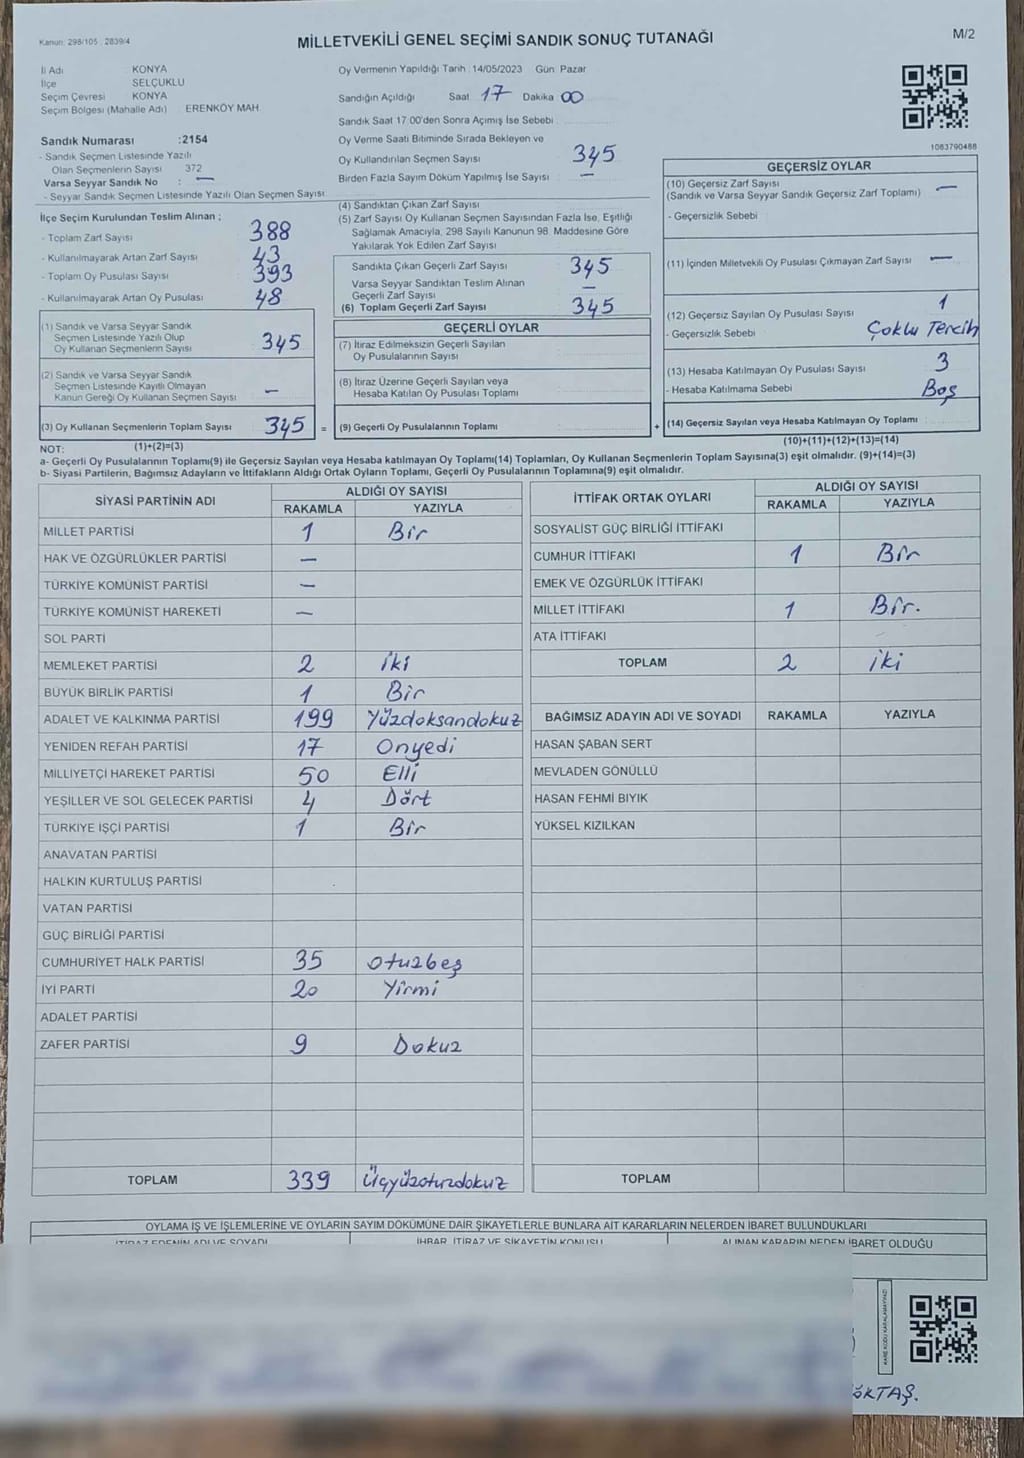 Kanun: 298/105 2839/4
MİLLETVEKİLİ GENEL SEÇİMİ SANDIK SONUÇ TUTANAĞI
M/2
İl Adı KONYA
İlçe SELÇUKLU
Seçim Çevresi KONYA
Seçim Bölgesi (Mahalle Adı) ERENKÖY MAH.
Sandık Numarası :2154
- Sandık Seçmen Listesinde Yazılı
Olan Seçmenlerin Sayısı 372
Varsa Seyyar Sandık No : —
- Seyyar Sandık Seçmen Listesinde Yazılı Olan Seçmen Sayısı
Oy Vermenin Yapıldığı Tarih :14/05/2023 Gün: Pazar
Sandığın Açıldığı Saat 17 Dakika 00
Sandık Saat 17:00'den Sonra Açımış İse Sebebi
Oy Verme Saati Bitiminde Sırada Bekleyen ve
Oy Kullandırılan Seçmen Sayısı 345
Birden Fazla Sayım Döküm Yapılmış İse Sayısı —
1083790488
İlçe Seçim Kurulundan Teslim Alınan ;
- Toplam Zarf Sayısı 388
- Kullanılmayarak Artan Zarf Sayısı 43
- Toplam Oy Pusulası Sayısı 393
- Kullanılmayarak Artan Oy Pusulası 48
(1) Sandık ve Varsa Seyyar Sandık
Seçmen Listesinde Yazılı Olup
Oy Kullanan Seçmenlerin Sayısı 345
(2) Sandık ve Varsa Seyyar Sandık
Seçmen Listesinde Kayıtlı Olmayan
Kanun Gereği Oy Kullanan Seçmen Sayısı —
(3) Oy Kullanan Seçmenlerin Toplam Sayısı 345 =
(4) Sandıktan Çıkan Zarf Sayısı
(5) Zarf Sayısı Oy Kullanan Seçmen Sayısından Fazla İse, Eşitliği
Sağlamak Amacıyla, 298 Sayılı Kanunun 98. Maddesine Göre
Yakılarak Yok Edilen Zarf Sayısı
Sandıkta Çıkan Geçerli Zarf Sayısı 345
Varsa Seyyar Sandıktan Teslim Alınan
Geçerli Zarf Sayısı —
(6) Toplam Geçerli Zarf Sayısı 345
GEÇERLİ OYLAR
(7) İtiraz Edilmeksizin Geçerli Sayılan
Oy Pusulalarının Sayısı
(8) İtiraz Üzerine Geçerli Sayılan veya
Hesaba Katılan Oy Pusulası Toplamı
(9) Geçerli Oy Pusulalarının Toplamı +
GEÇERSİZ OYLAR
(10) Geçersiz Zarf Sayısı —
(Sandık ve Varsa Seyyar Sandık Geçersiz Zarf Toplamı)
- Geçersizlik Sebebi
(11) İçinden Milletvekili Oy Pusulası Çıkmayan Zarf Sayısı —
(12) Geçersiz Sayılan Oy Pusulası Sayısı 1
- Geçersizlik Sebebi Çoklu Tercih
(13) Hesaba Katılmayan Oy Pusulası Sayısı 3
- Hesaba Katılmama Sebebi Boş
(14) Geçersiz Sayılan veya Hesaba Katılmayan Oy Toplamı
NOT: (1)+(2)=(3) (10)+(11)+(12)+(13)=(14)
a- Geçerli Oy Pusulalarının Toplamı(9) ile Geçersiz Sayılan veya Hesaba katılmayan Oy Toplamı(14) Toplamları, Oy Kullanan Seçmenlerin Toplam Sayısına(3) eşit olmalıdır. (9)+(14)=(3)
b- Siyasi Partilerin, Bağımsız Adayların ve İttifakların Aldığı Ortak Oyların Toplamı, Geçerli Oy Pusulalarının Toplamına(9) eşit olmalıdır.
SİYASİ PARTİNİN ADI ALDIĞI OY SAYISI
RAKAMLA YAZIYLA
MİLLET PARTİSİ 1 Bir
HAK VE ÖZGÜRLÜKLER PARTİSİ —
TÜRKİYE KOMÜNİST PARTİSİ —
TÜRKİYE KOMÜNİST HAREKETİ —
SOL PARTİ
MEMLEKET PARTİSİ 2 iki
BÜYÜK BİRLİK PARTİSİ 1 Bir
ADALET VE KALKINMA PARTİSİ 199 Yüzdoksandokuz
YENİDEN REFAH PARTİSİ 17 Onyedi
MİLLİYETÇİ HAREKET PARTİSİ 50 Elli
YEŞİLLER VE SOL GELECEK PARTİSİ 4 Dört
TÜRKİYE İŞÇİ PARTİSİ 1 Bir
ANAVATAN PARTİSİ
HALKIN KURTULUŞ PARTİSİ
VATAN PARTİSİ
GÜÇ BİRLİĞİ PARTİSİ
CUMHURİYET HALK PARTİSİ 35 otuzbeş
İYİ PARTİ 20 Yirmi
ADALET PARTİSİ
ZAFER PARTİSİ 9 Dokuz
TOPLAM 339 Üçyüzotuzdokuz
İTTİFAK ORTAK OYLARI ALDIĞI OY SAYISI
RAKAMLA YAZIYLA
SOSYALİST GÜÇ BİRLİĞİ İTTİFAKI
CUMHUR İTTİFAKI 1 Bir
EMEK VE ÖZGÜRLÜK İTTİFAKI
MİLLET İTTİFAKI 1 Bir.
ATA İTTİFAKI
TOPLAM 2 iki
BAĞIMSIZ ADAYIN ADI VE SOYADI RAKAMLA YAZIYLA
HASAN ŞABAN SERT
MEVLADEN GÖNÜLLÜ
HASAN FEHMİ BIYIK
YÜKSEL KIZILKAN
TOPLAM
OYLAMA İŞ VE İŞLEMLERİNE VE OYLARIN SAYIM DÖKÜMÜNE DAİR ŞİKAYETLERLE BUNLARA AİT KARARLARIN NELERDEN İBARET BULUNDUKLARI
İTİRAZ EDENİN ADI VE SOYADI İHBAR, İTİRAZ VE ŞİKAYETİN KONUSU ALINAN KARARIN NEDEN İBARET OLDUĞU
KARE KODU KARALAMAYINIZ!
ÖKTAŞ.